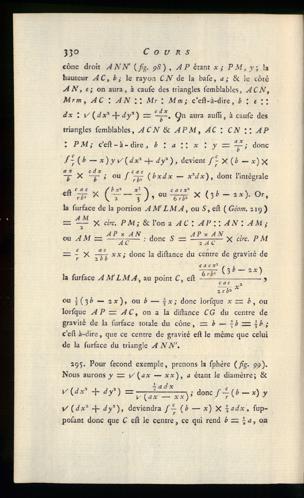 330 COURS
cône droit ANN' (fig. 98), AP étant x; PM, y; la
hauteur AC, b; le rayon CN de la base, a; & le côté
AN, e; on aura, à cause des triangles semblables, ACN,
Mrm, AC : AN :: Mr : Mm; c'est-à-dire, b : e ::
dx : √(dx² + dy²) = e dx / b. On aura aussi, à cause des
triangles semblables, ACN & APM, AC : CN :: AP
: PM; c'est-à-dire, b : a :: x : y = ax / b; donc
∫ c/r (b − x) y √(dx² + dy²), devient ∫ c/r × (b − x) ×
ax/b × e dx/b; ou ∫ cae/rb² (bx dx − x² dx), dont l'intégrale
est cae/rb² × (bx²/2 − x³/3), ou caex²/6rb² × (3b − 2x). Or,
la surface de la portion AM'LMA, ou S, est (Géom. 219)
= AM/2 × circ. PM; & l'on a AC : AP :: AN : AM;
ou AM = AP × AN / AC : donc S = AP × AN / 2AC × circ. PM
= c/r × ae/2bb xx; donc la distance du centre de gravité de
la surface AM'LMA, au point C, est caex²/6rb² (3b − 2x) / cae/2rb² x²,
ou 1/3 (3b − 2x), ou b − 2/3 x; donc lorsque x = b, ou
lorsque AP = AC, on a la distance CG du centre de
gravité de la surface totale du cône, = b − 2/3 b = 1/3 b;
c'est-à-dire, que ce centre de gravité est le même que celui
de la surface du triangle ANN'.
295. Pour second exemple, prenons la sphère (fig. 99).
Nous aurons y = √(ax − xx), a étant le diamètre; &
√(dx² + dy²) = ½ a dx / √(ax − xx); donc ∫ c/r (b − x) y
√(dx² + dy²), deviendra ∫ c/r (b − x) × ½ a dx, sup-
posant donc que C est le centre, ce qui rend b = ½ a, on